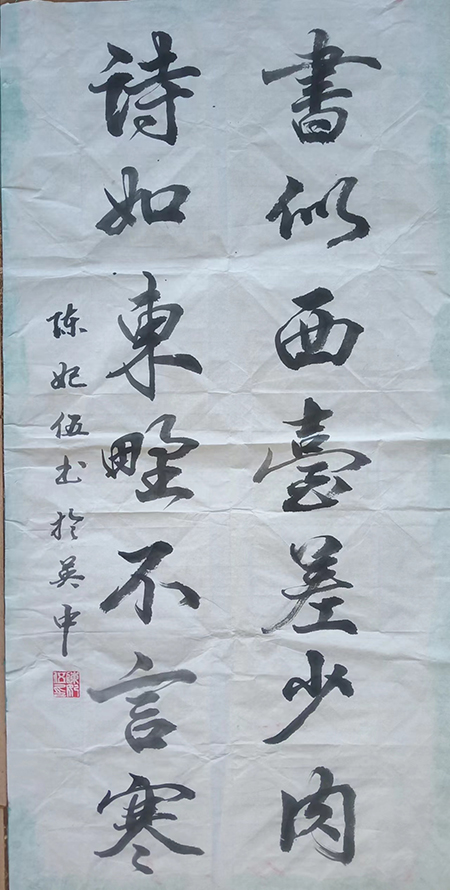 書似西臺差少肉
詩如東野不言寒
陈妃伍书於吴中